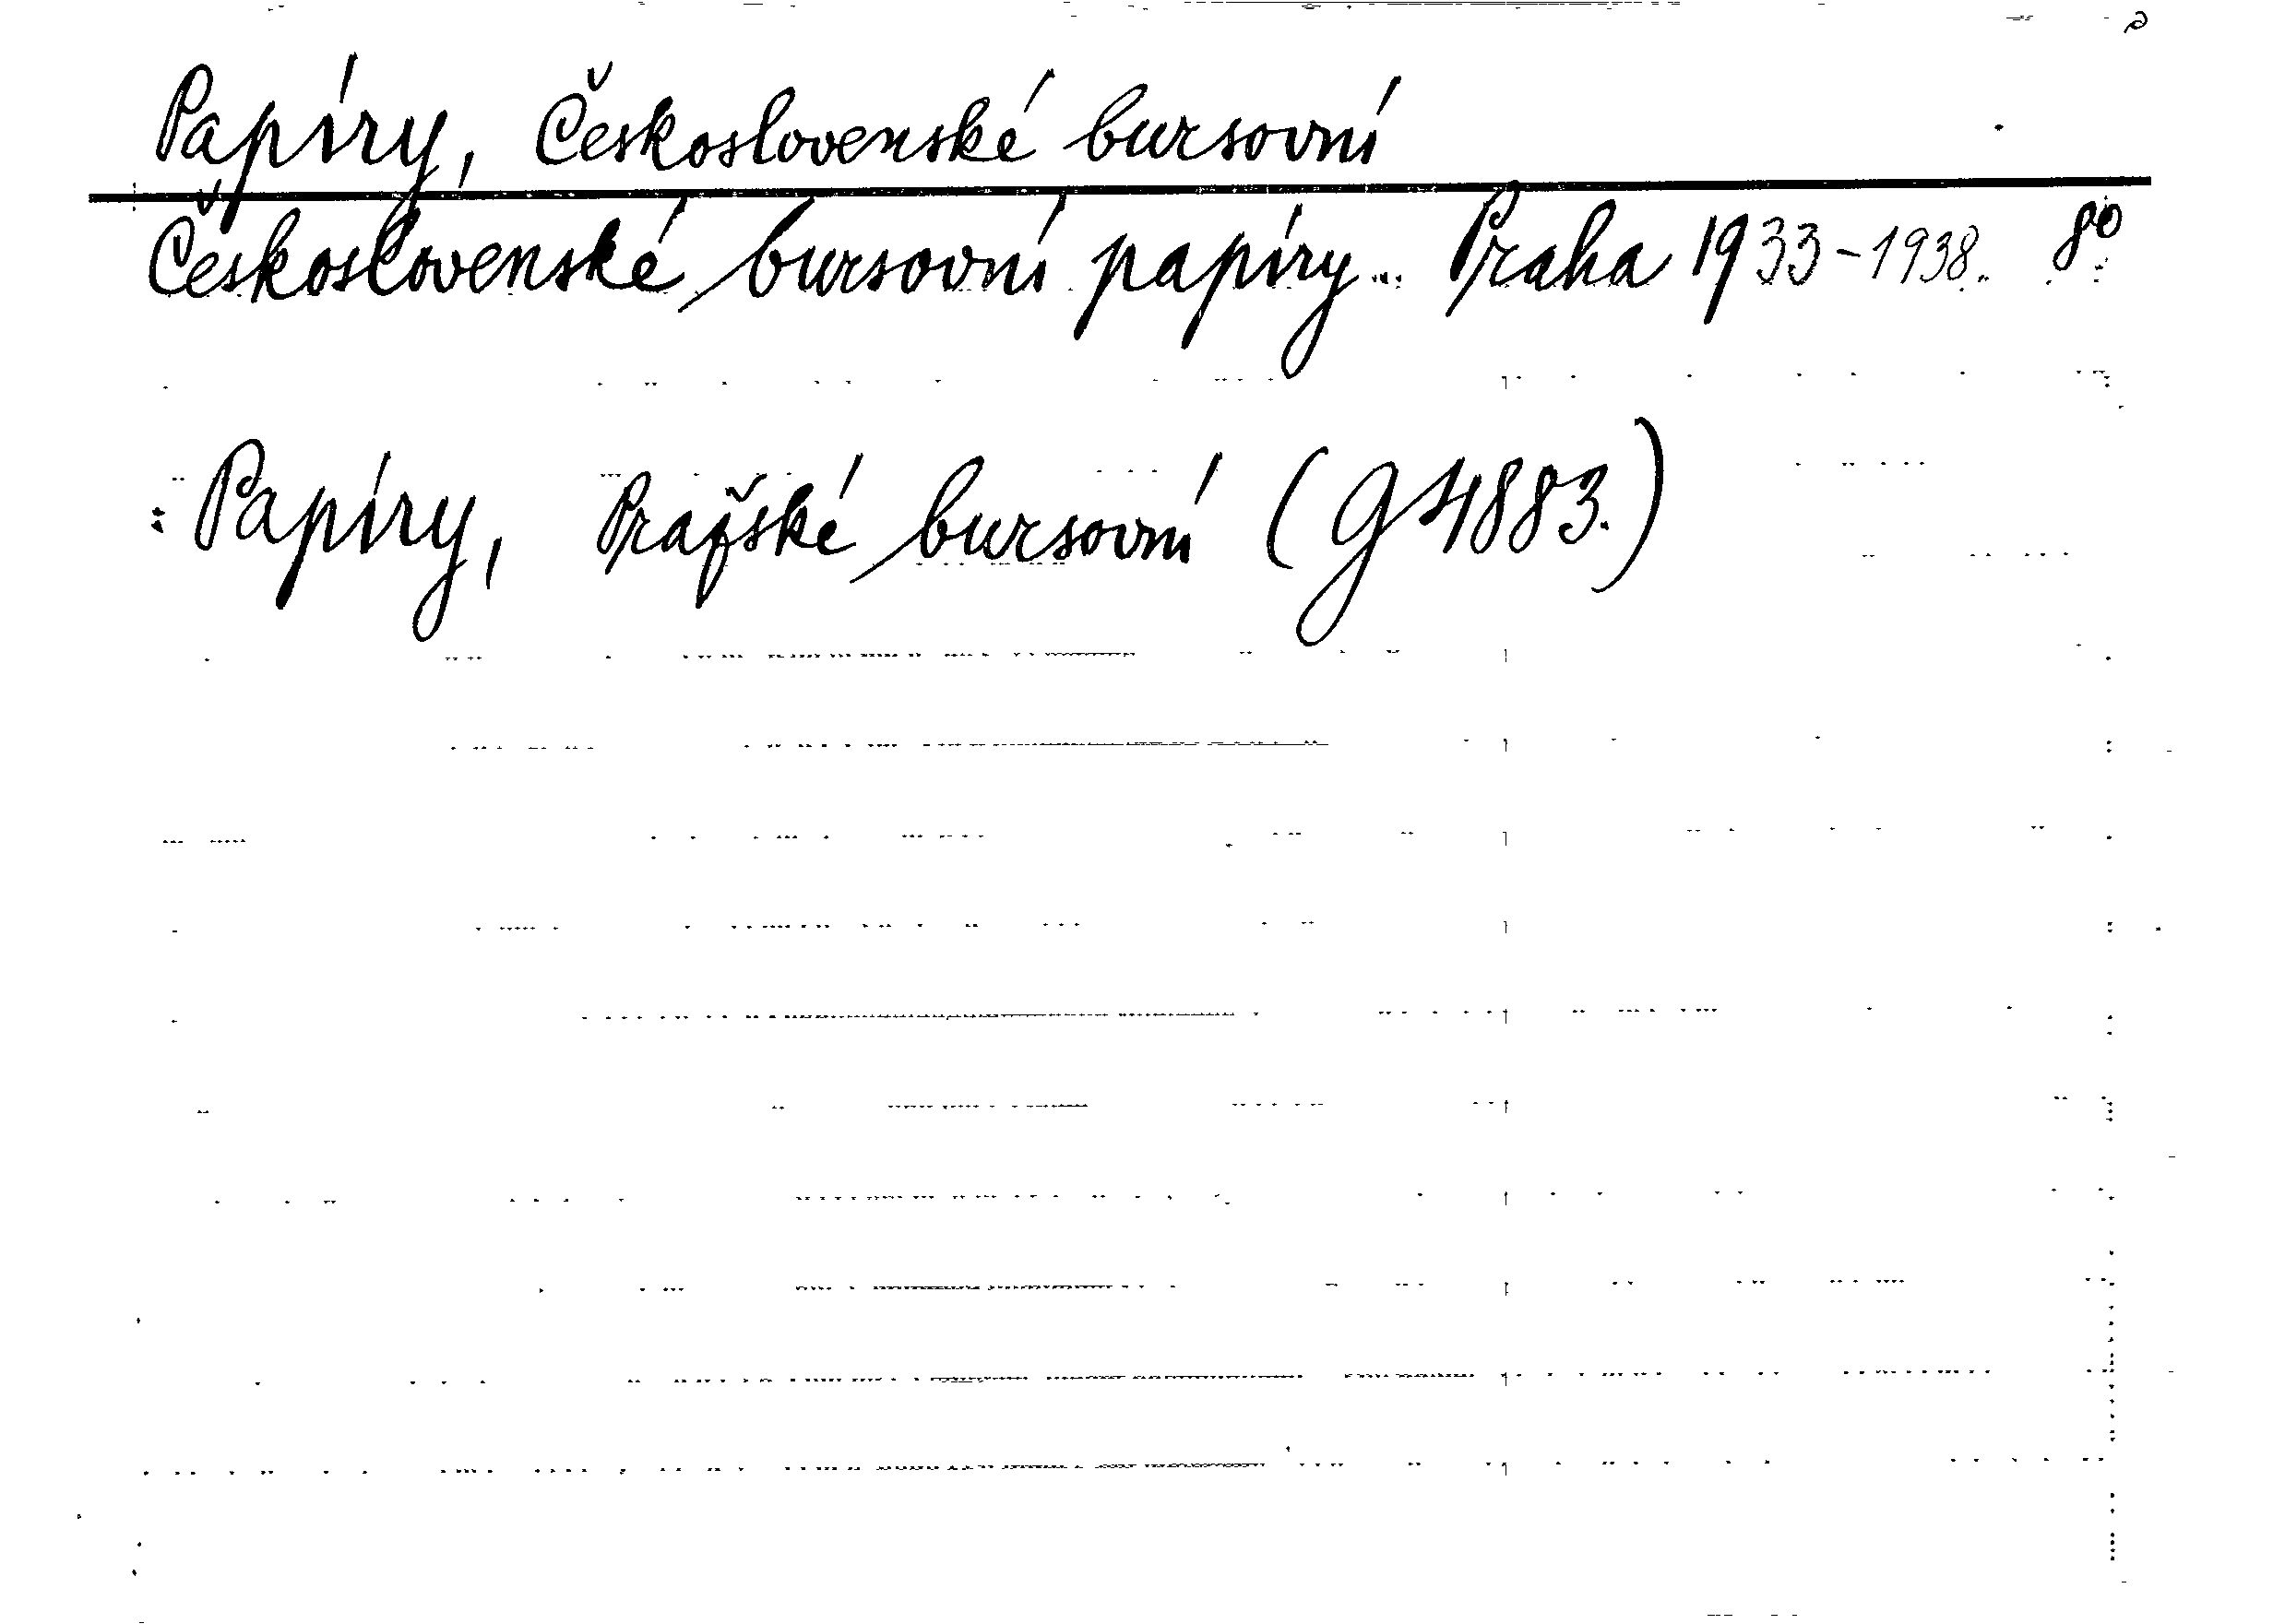 Papíry, Československé bursovní
Československé bursovní papíry. Praha 1933-1938. 8°
Papíry, Pražské bursovní (G 4883.)